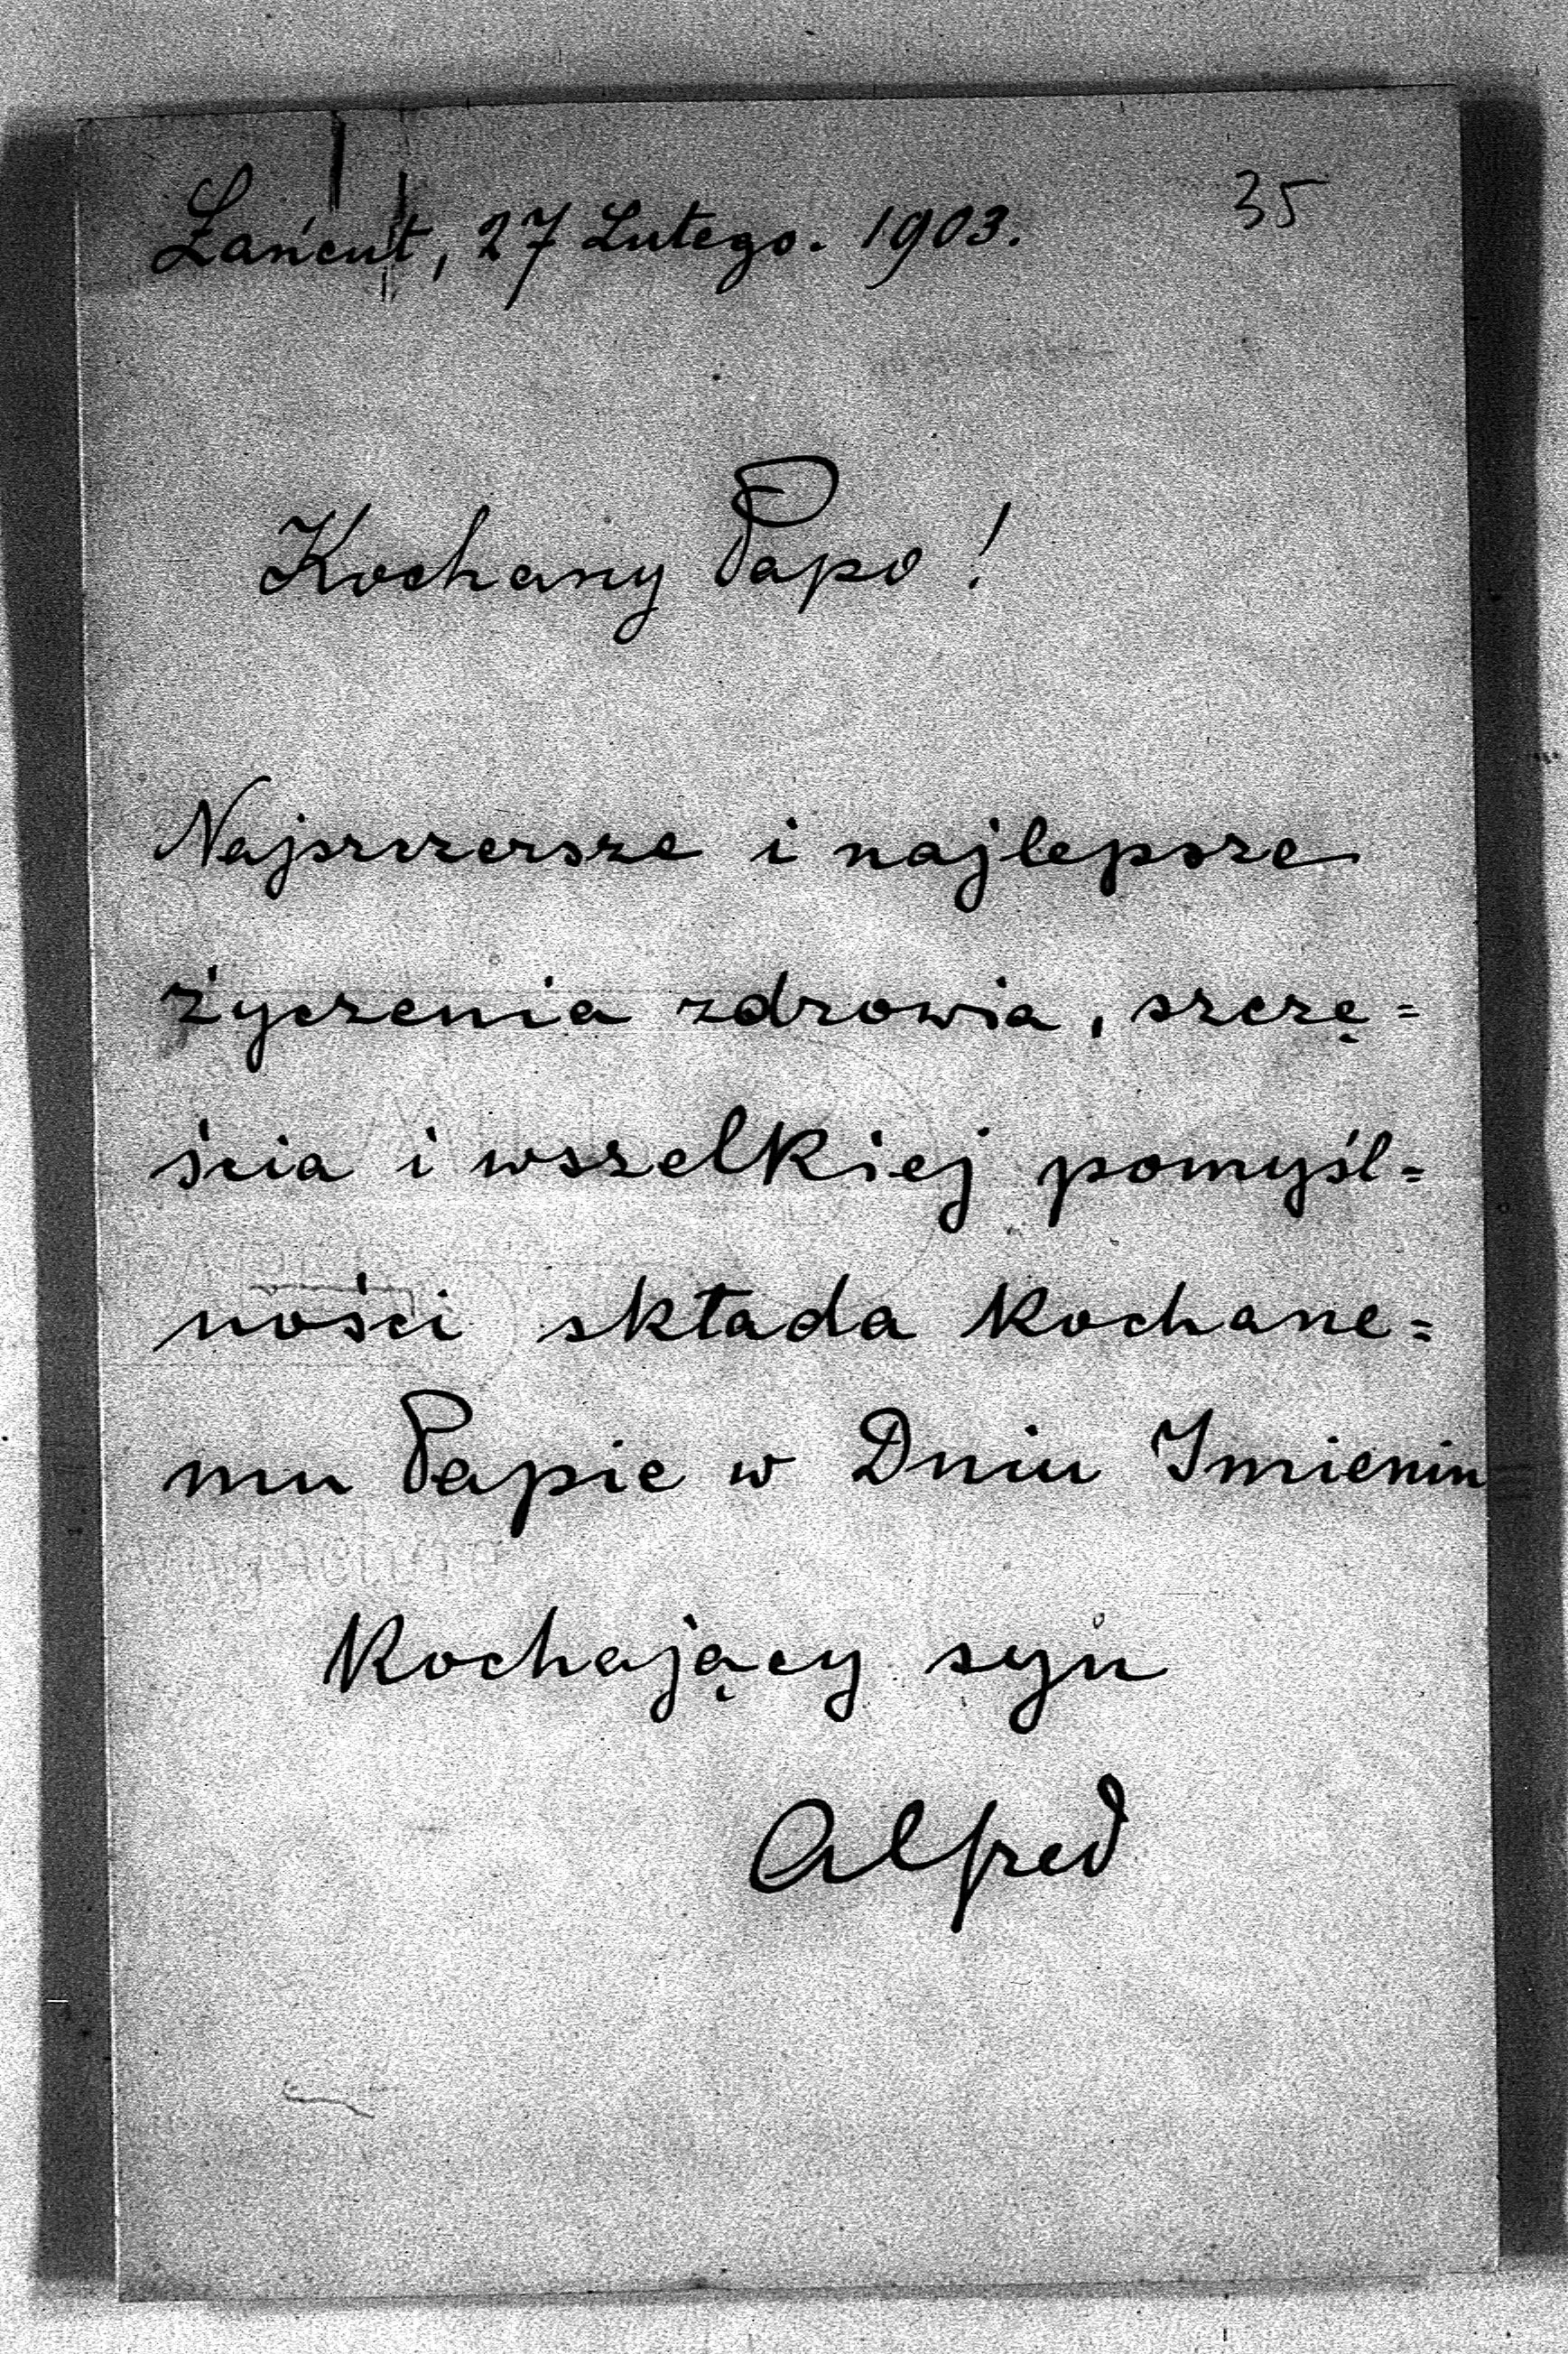 Łańcut, 27 Lutego. 1903.
35
Kochany Papo!
Najszczersze i najlepsze
życzenia zdrowia, szczę=
ścia i wszelkiej pomyśl=
ności składa kochane=
mu Papie w Dniu Imienin
Kochający syn
Alfred